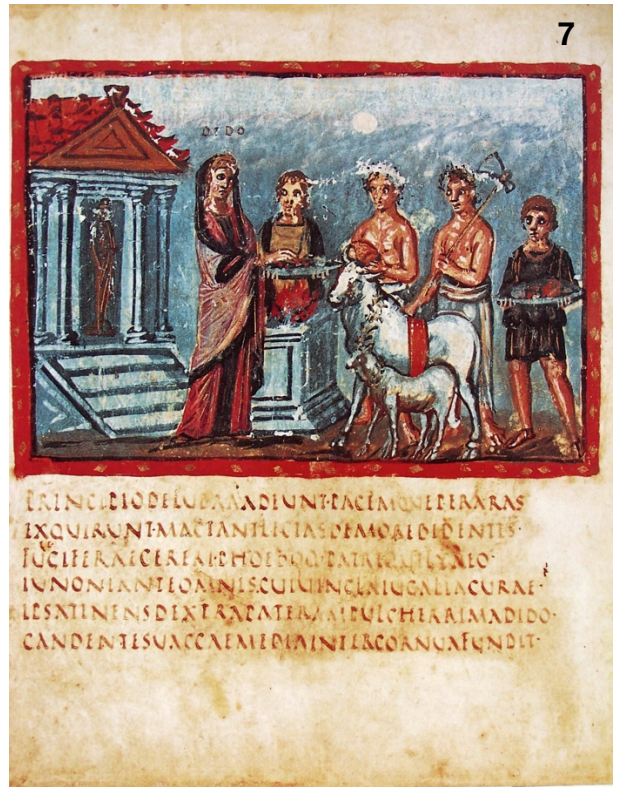 7
DIDO
PRINCIPIODELUBRAADEUNTPACEMQUEPERARAS
EXQUIRUNT·MACTANTLECTASDEMOREBIDENTES·
CERERI·PHOEBOQ·PATRIQUELYAEO·
IUNONIANTEOMNIS·CUIUINCLAIUGALIACURAE·
IPSATENENSDEXTRAPATERAMPULCHERRIMADIDO·
CANDENTESUACCAEMEDIAINTERCORNUAFUNDIT·